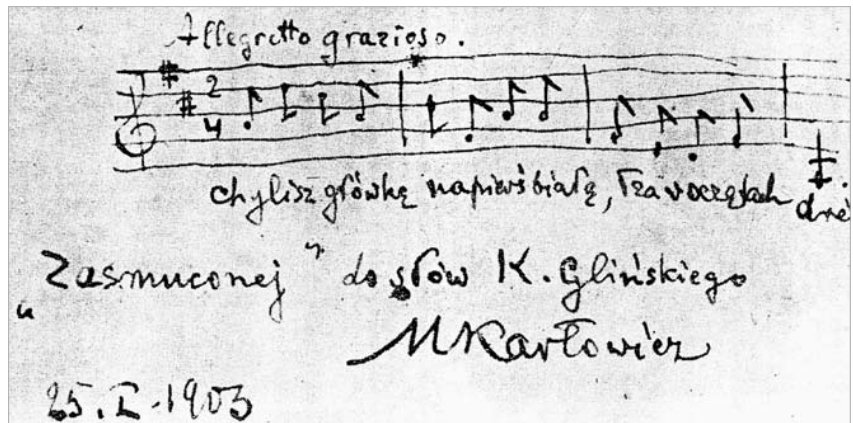 Allegretto grazioso.
2
4
chylisz główkę na pierś białą, łza w oczętach drż
„Zasmuconej" do słów K. Glińskiego
MKarłowicz
25. I. 1903